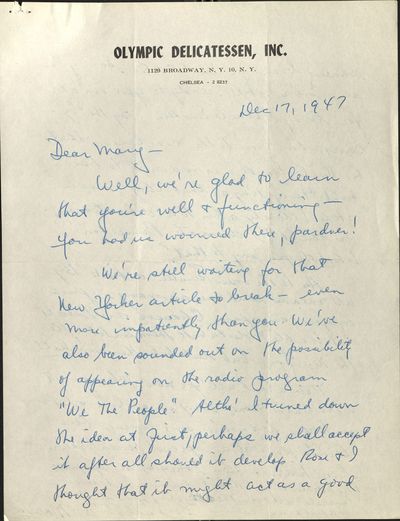 OLYMPIC DELICATESSEN, INC.
1129 BROADWAY, N. Y. 10, N. Y.
CHELSEA - 2 8237
Dec 17, 1947
Dear Mary —
Well, we're glad to learn
that you're well & functioning —
You had us worried there, pardner!
We're still waiting for that
New Yorker article to break — even
more impatiently than you. We've
also been sounded out on the possibility
of appearing on the radio program
"We The People". Altho' I turned down
the idea at first, perhaps we shall accept
it after all should it develop. Rose & I
thought that it might act as a good